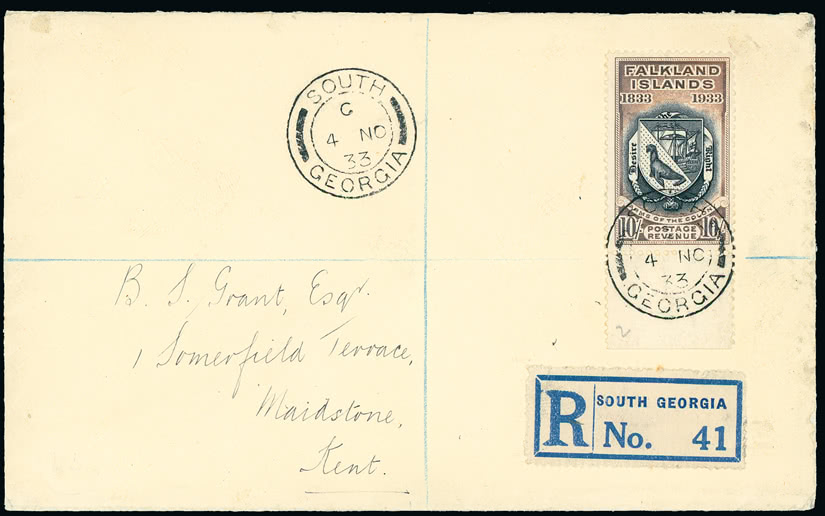 SOUTH
C
4 NO
33
GEORGIA
FALKLAND
ISLANDS
1833 1933
Desire Right
ARMS OF THE COLONY
10/- POSTAGE 10/-
REVENUE
4 NO
33
GEORGIA
2
B. S. Grant, Esqr.
1 Somerfield Terrace,
Maidstone,
Kent.
R SOUTH GEORGIA
No. 41